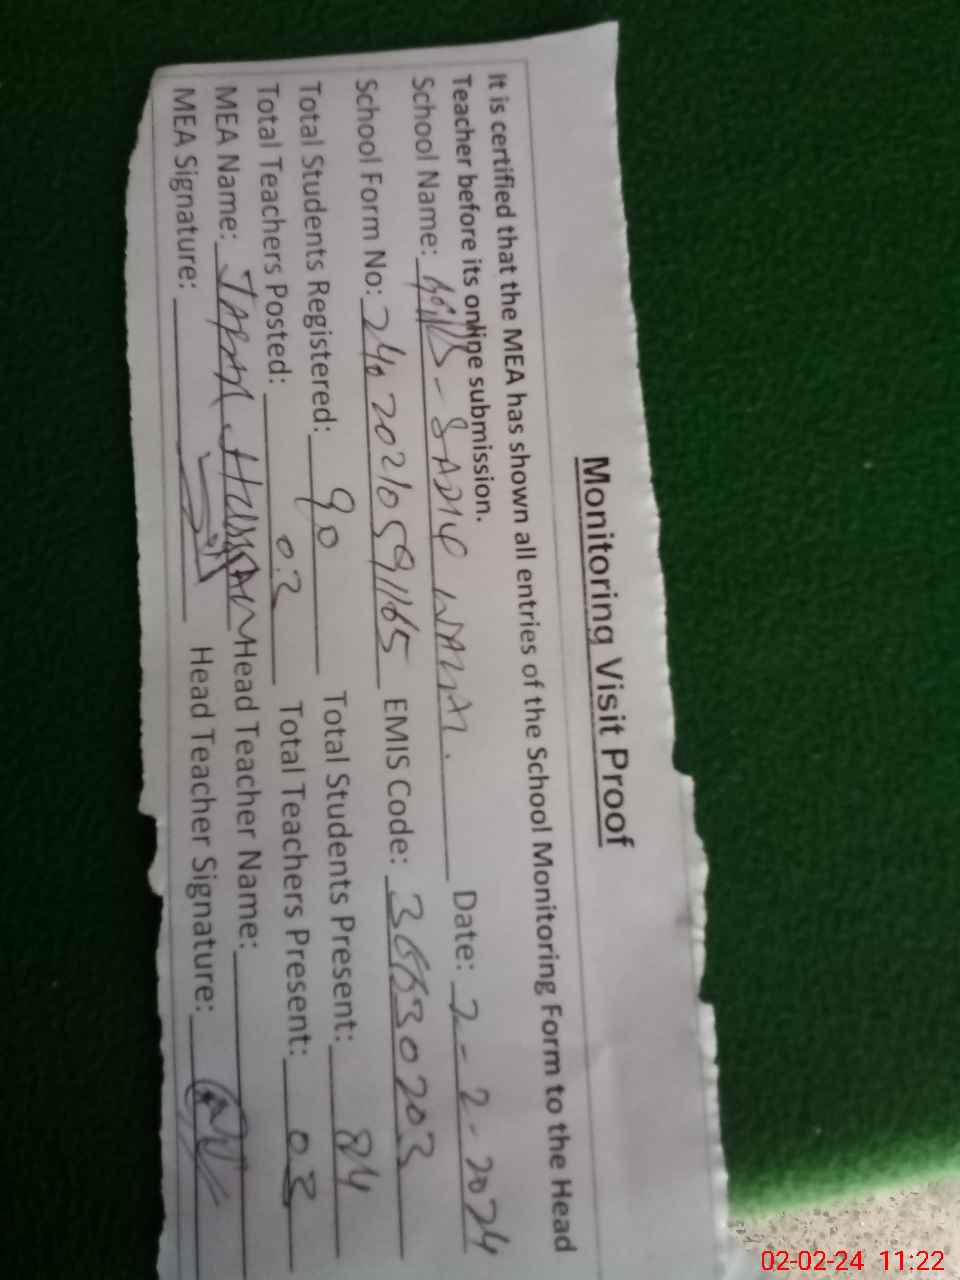 Monitoring Visit Proof
It is certified that the MEA has shown all entries of the School Monitoring Form to the Head
Teacher before its online submission.
School Name: - SADIQ Date: 2-2-2024
School Form No: 24020210591165 EMIS Code: 36630203
Total Students Registered: 90 Total Students Present: 84
Total Teachers Posted: 03 Total Teachers Present: 03
MEA Name: Head Teacher Name:
MEA Signature: Head Teacher Signature:
02-02-24 11:22